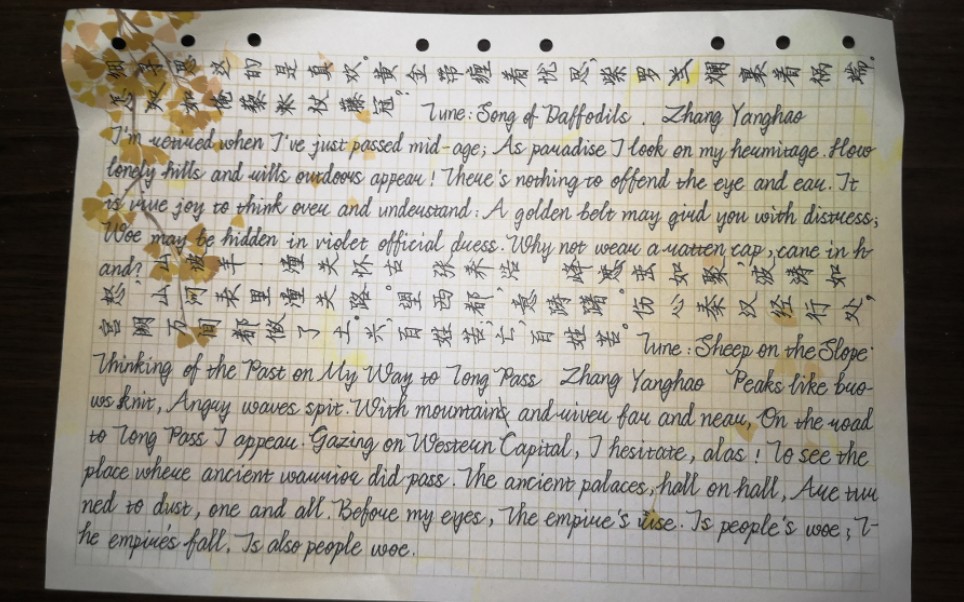 细寻思这的是真欢。黄金带缠着忧患,紫罗襕裹着祸端。
怎如俺藜杖藤冠。 Tune: Song of Daffodils. Zhang Yanghao
I'm retired when I've just passed mid-age; As paradise I look on my hermitage. How
lonely hills and rills outdoors appear! There's nothing to offend the eye and ear. It
is vive joy to think over and understand: A golden belt may gird you with distress;
Woe may be hidden in violet official dress. Why not wear a ratten cap, cane in h-
and? 山坡羊·潼关怀古 张养浩 峰峦如聚,波涛如
怒,山河表里潼关路。望西都,意踌躇。伤心秦汉经行处,
宫阙万间都做了土。兴,百姓苦;亡,百姓苦。 Tune: Sheep on the Slope·
Thinking of the Past on My Way to Tong Pass Zhang Yanghao Peaks like bro-
ws knit, Angry waves spit. With mountain and river far and near, On the road
to Tong Pass I appear. Gazing on Western Capital, I hesitate, alas! To see the
place where ancient warrior did pass. The ancient palaces, hall on hall, Are tur
ned to dust, one and all. Before my eyes, The empire's rise. Is people's woe; T-
he empire's fall, Is also people woe.